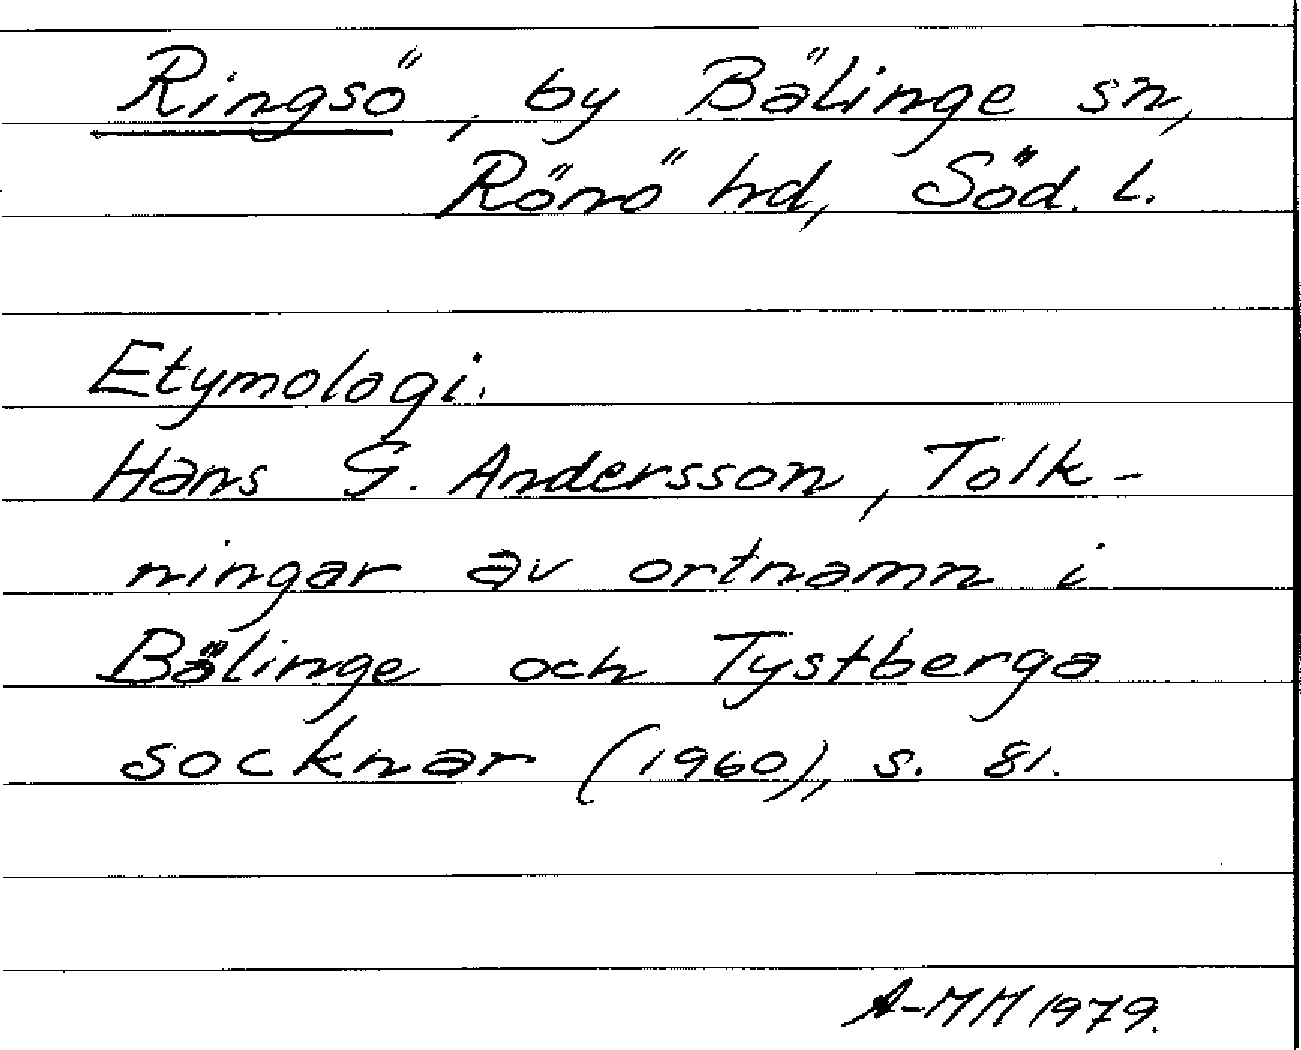 Ringsö, by Bälinge sn,
Rönö hd, Söd. l.
Etymologi.
Hans G. Andersson, Tolk-
ningar av ortnamn i
Bälinge och Tystberga
socknar (1960), s. 81.
A-MM 1979.